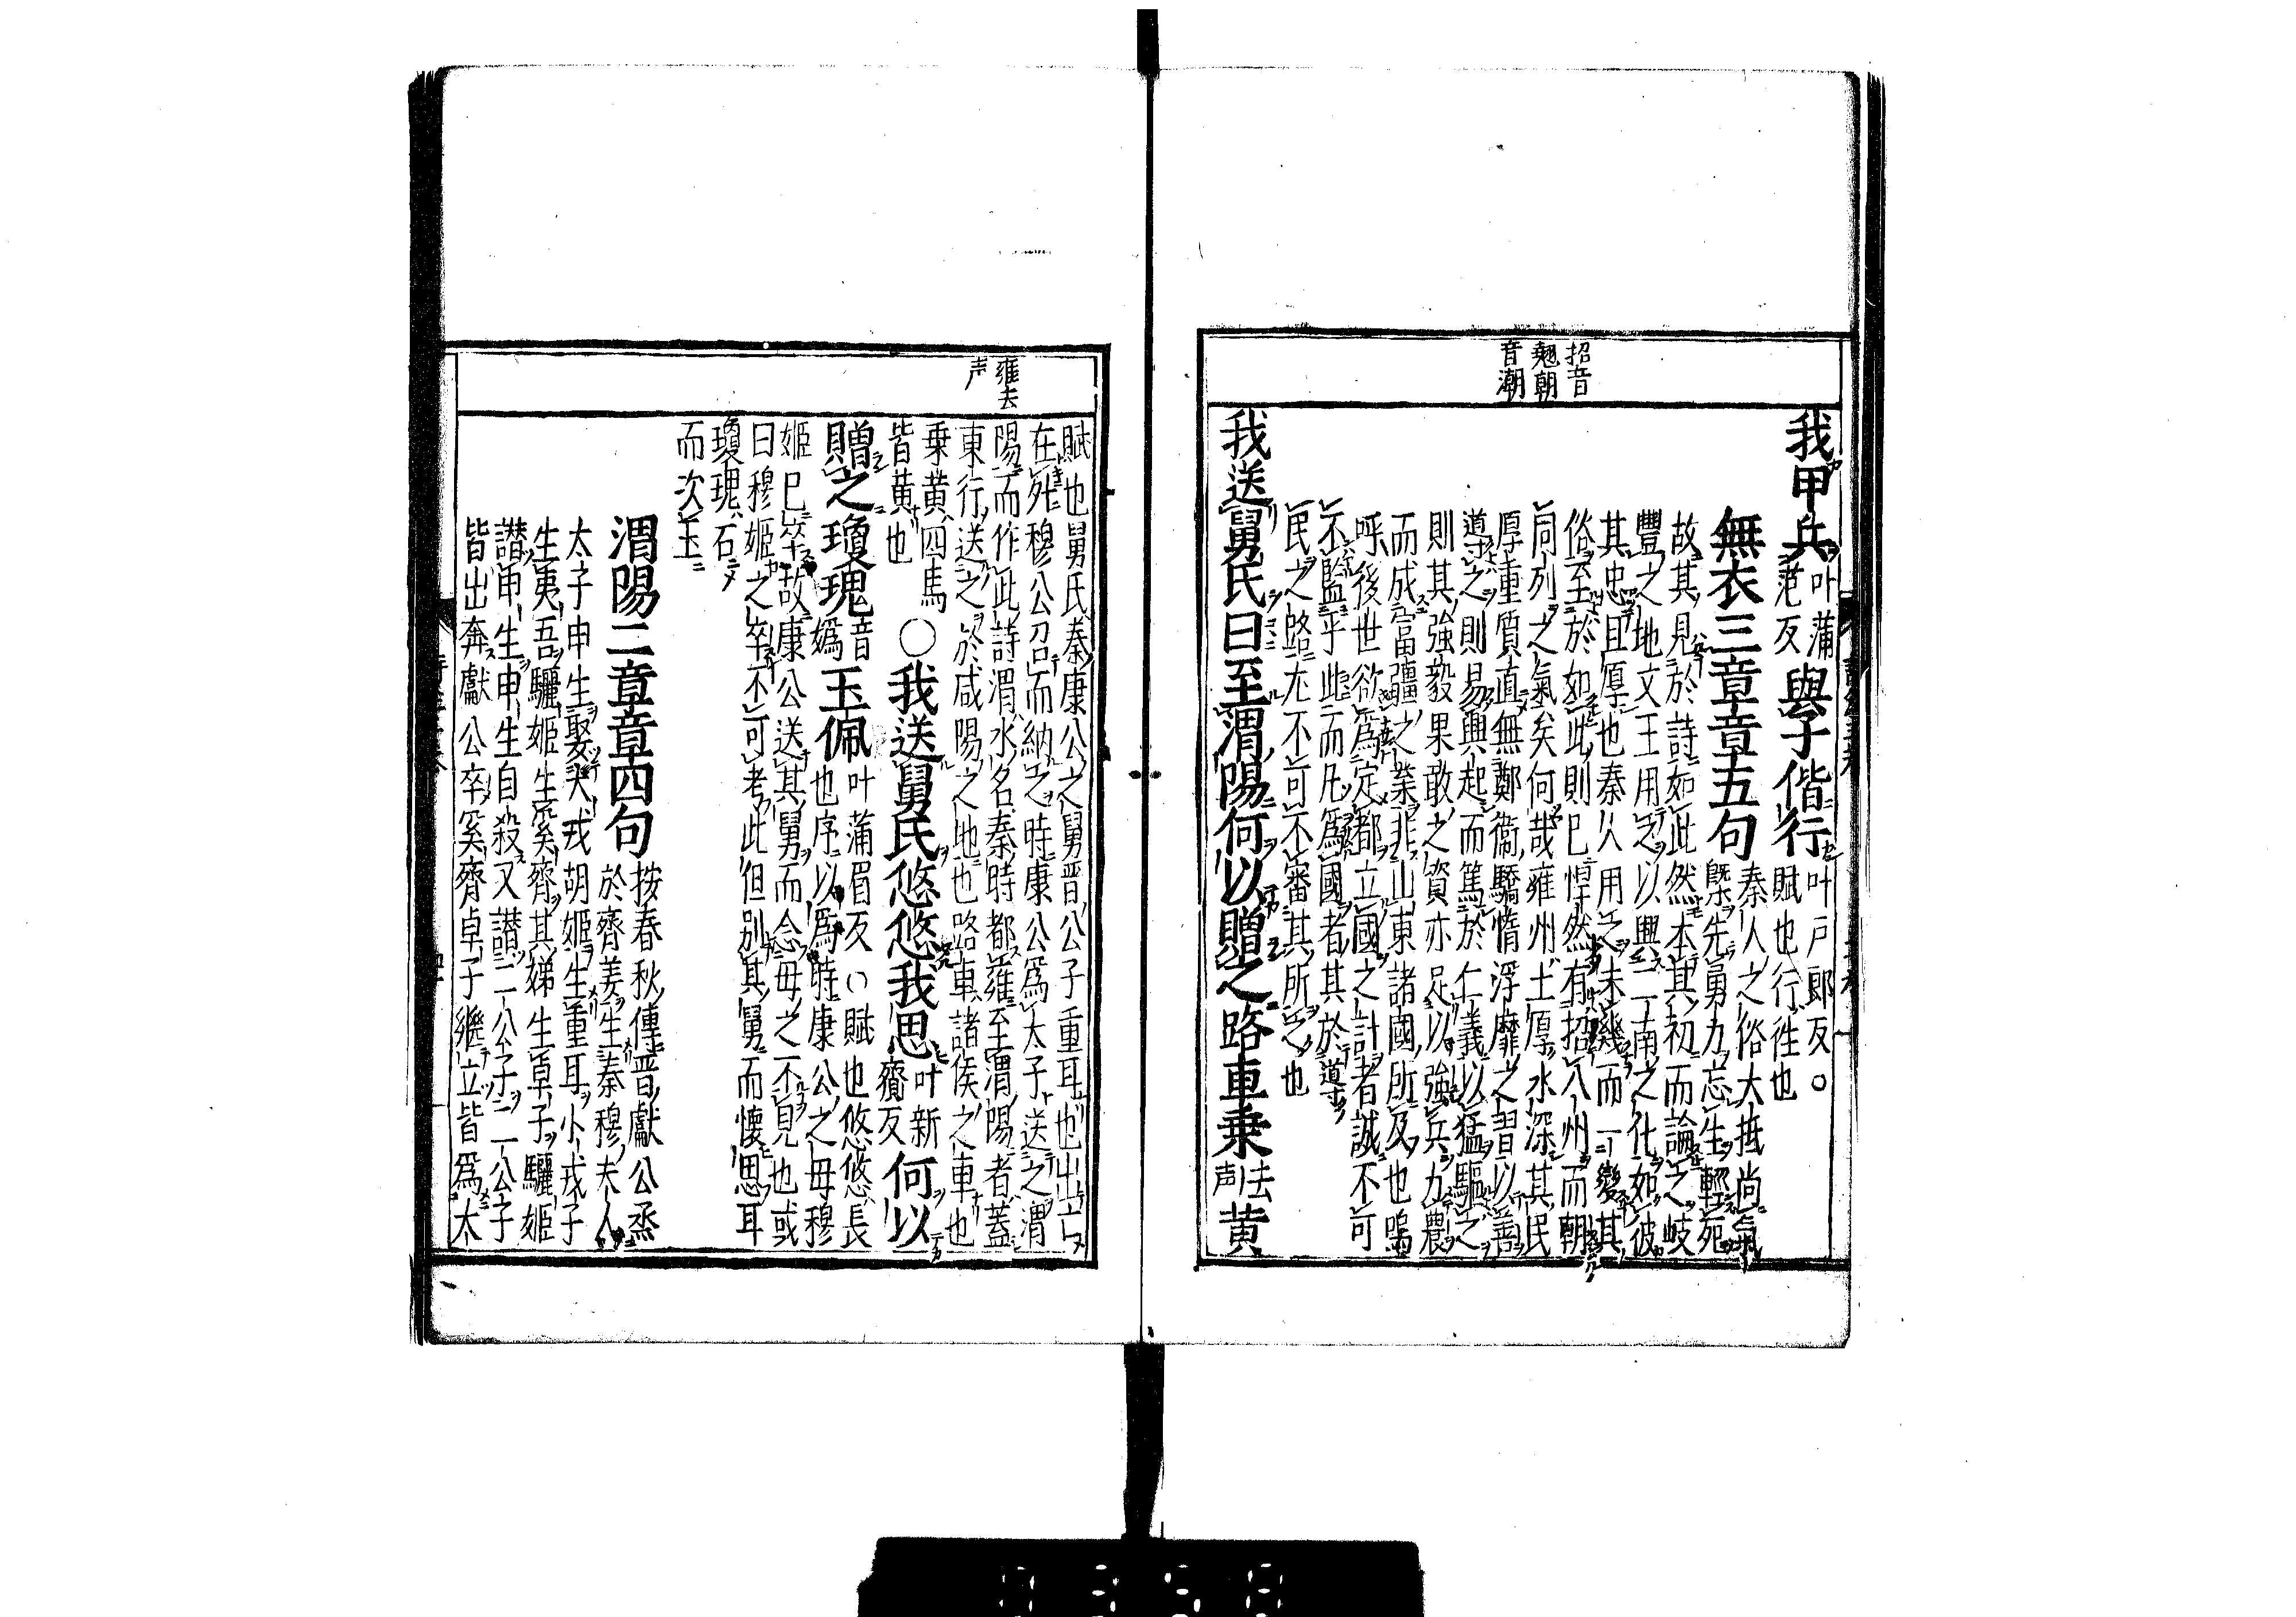 招音
翹朝
音潮
我甲兵叶蒲范反與子偕行叶戸郎反○賦也行往也
無衣三章章五句秦人之俗大抵尚氣槩先勇力忘生輕死
故其見於詩如此然本其初而論之岐
豐之地文王用之以興二南之化如彼
其忠且厚也秦人用之未幾而一變其
俗至於如此則已悍然有招八州而朝
同列之氣矣何哉雍州土厚水深其民
厚重質直無鄭衛驕惰浮靡之習以善
導之則易興起而篤於仁義以猛驅之
則其強毅果敢之資亦足以強兵力農
而成富疆之業非山東諸國所及也嗚
呼後世欲爲定都立國之計者誠不可
不監乎此而凡爲國者其於導
民之路尤不可不審其所之也
我送舅氏曰至渭陽何以贈之路車乗去声黃
雍去
声
賦也舅氏秦康公之舅晋公子重耳也出亡
在外穆公召而納之時康公爲太子送之渭
陽而作此詩渭水名秦時都雍至渭陽者蓋
東行送之於咸陽之地也路車諸侯之車也
乗黃四馬皆黃也
○我送舅氏悠悠我思叶新齎反何以
贈之瓊瑰音嬀玉佩叶蒲眉反○賦也悠悠長也序以爲時康公之母穆
姬已卒故康公送其舅而念母之不見也或
曰穆姬之卒不可考此但別其舅而懷思耳
瓊瑰石
而次玉
渭陽二章章四句按春秋傳晋獻公烝於齊姜生秦穆夫人
太子申生娶犬戎胡姬生重耳小戎子
生夷吾驪姬生奚齊其娣生卓子驪姬
譖申生申生自殺又譖二公子二公子
皆出奔獻公卒奚齊卓子繼立皆爲大